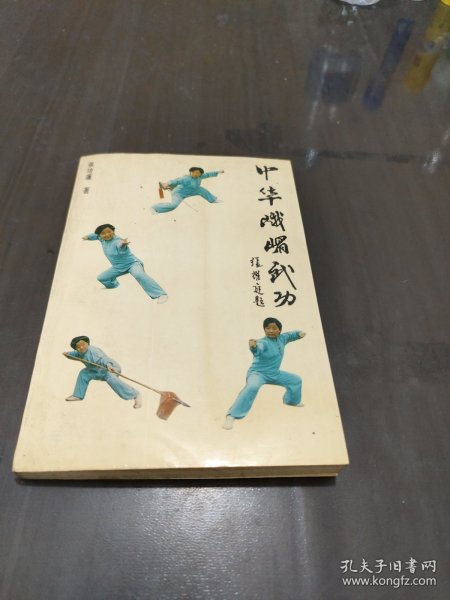 中华峨嵋武功
张耀庭题
著
孔夫子旧书网
www.kongfz.com